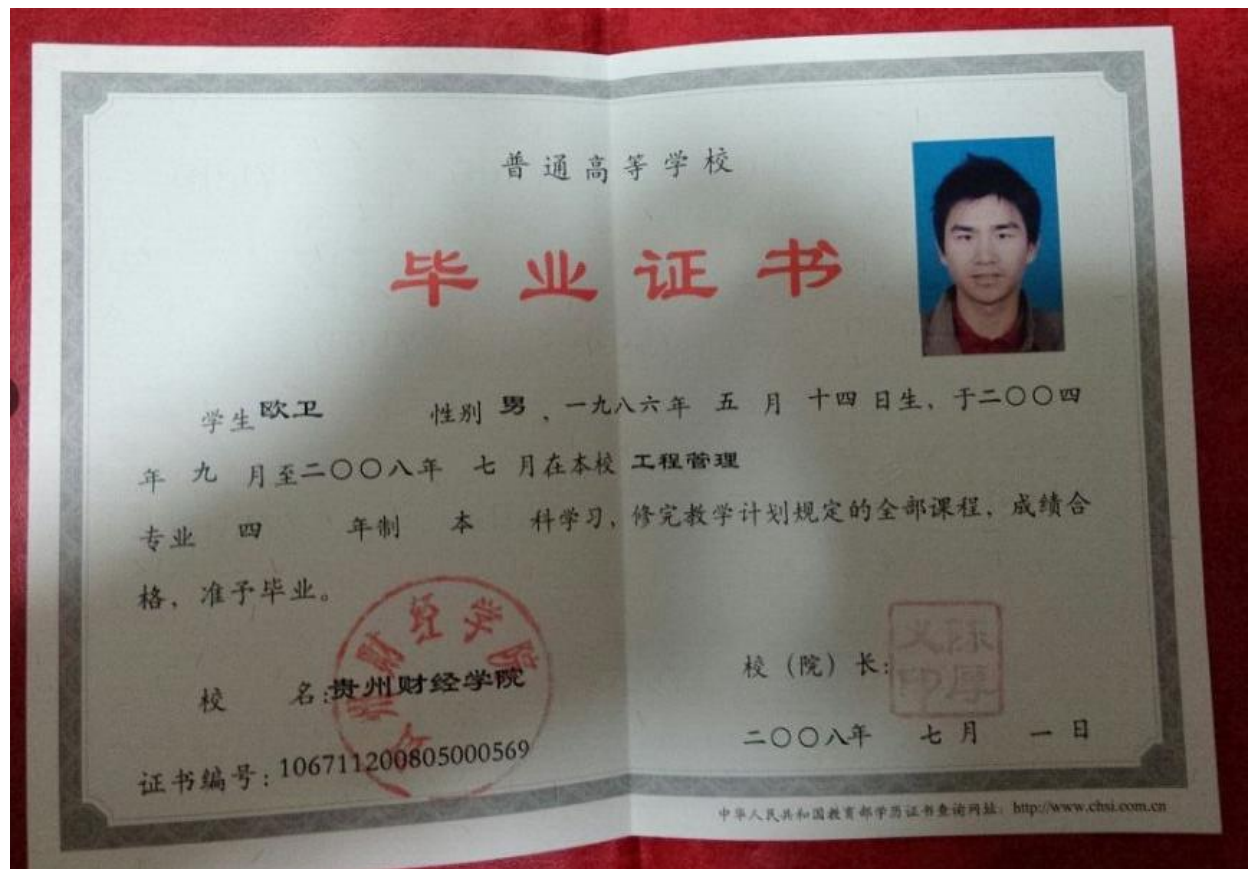 普通高等学校
毕业证书
学生 欧卫 性别 男 、一九八六年 五 月 十四 日生、于二〇〇四
年 九 月至二〇〇八年 七 月在本校 工程管理
专业 四 年制 本 科学习，修完教学计划规定的全部课程、成绩合
格、准予毕业。
校 名:贵州财经学院
校（院）长:
二〇〇八年 七 月 一 日
证书编号: 106711200805000569
中华人民共和国教育部学历证书查询网址: http://www.chsi.com.cn